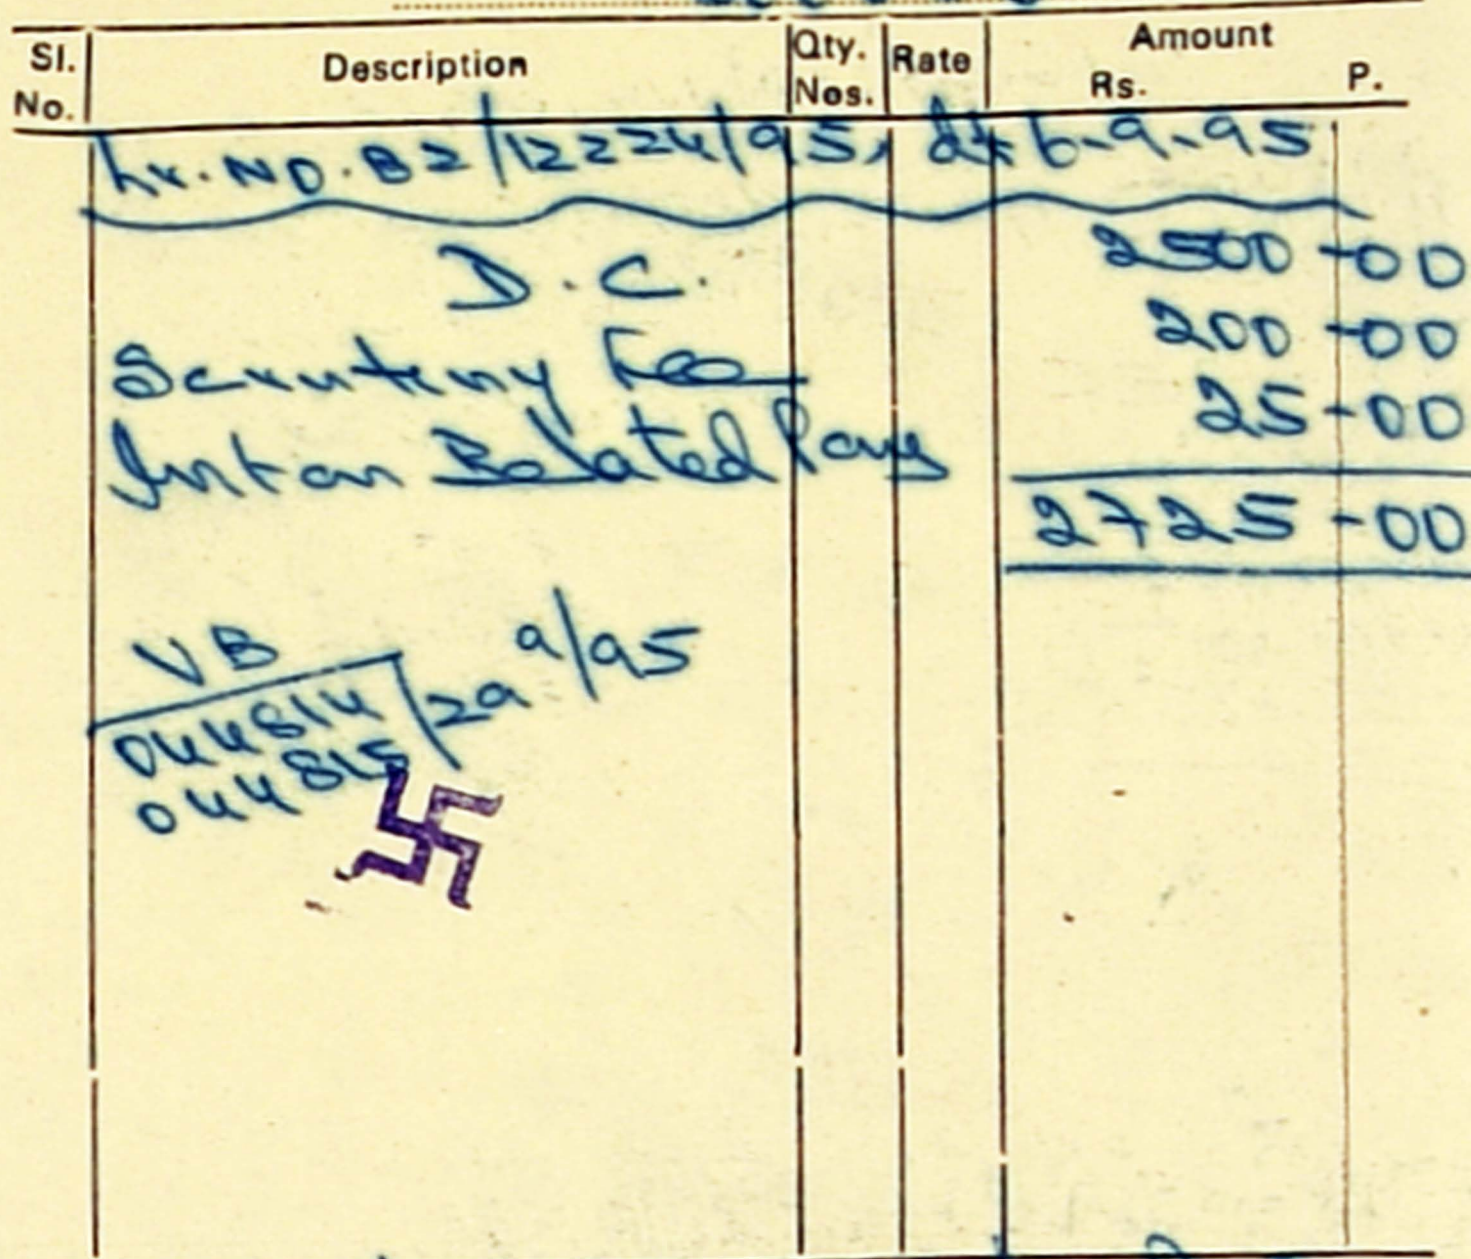 Sl. No. Description Qty. Nos. Rate Amount Rs. P.
Lr. NO. B2/12224/95, dt 6-9-95
D.C. 2500-00
Scrutiny Fee 200-00
Int on Belated Pay 25-00
2725-00
VB
044814 /29 9/95
044815